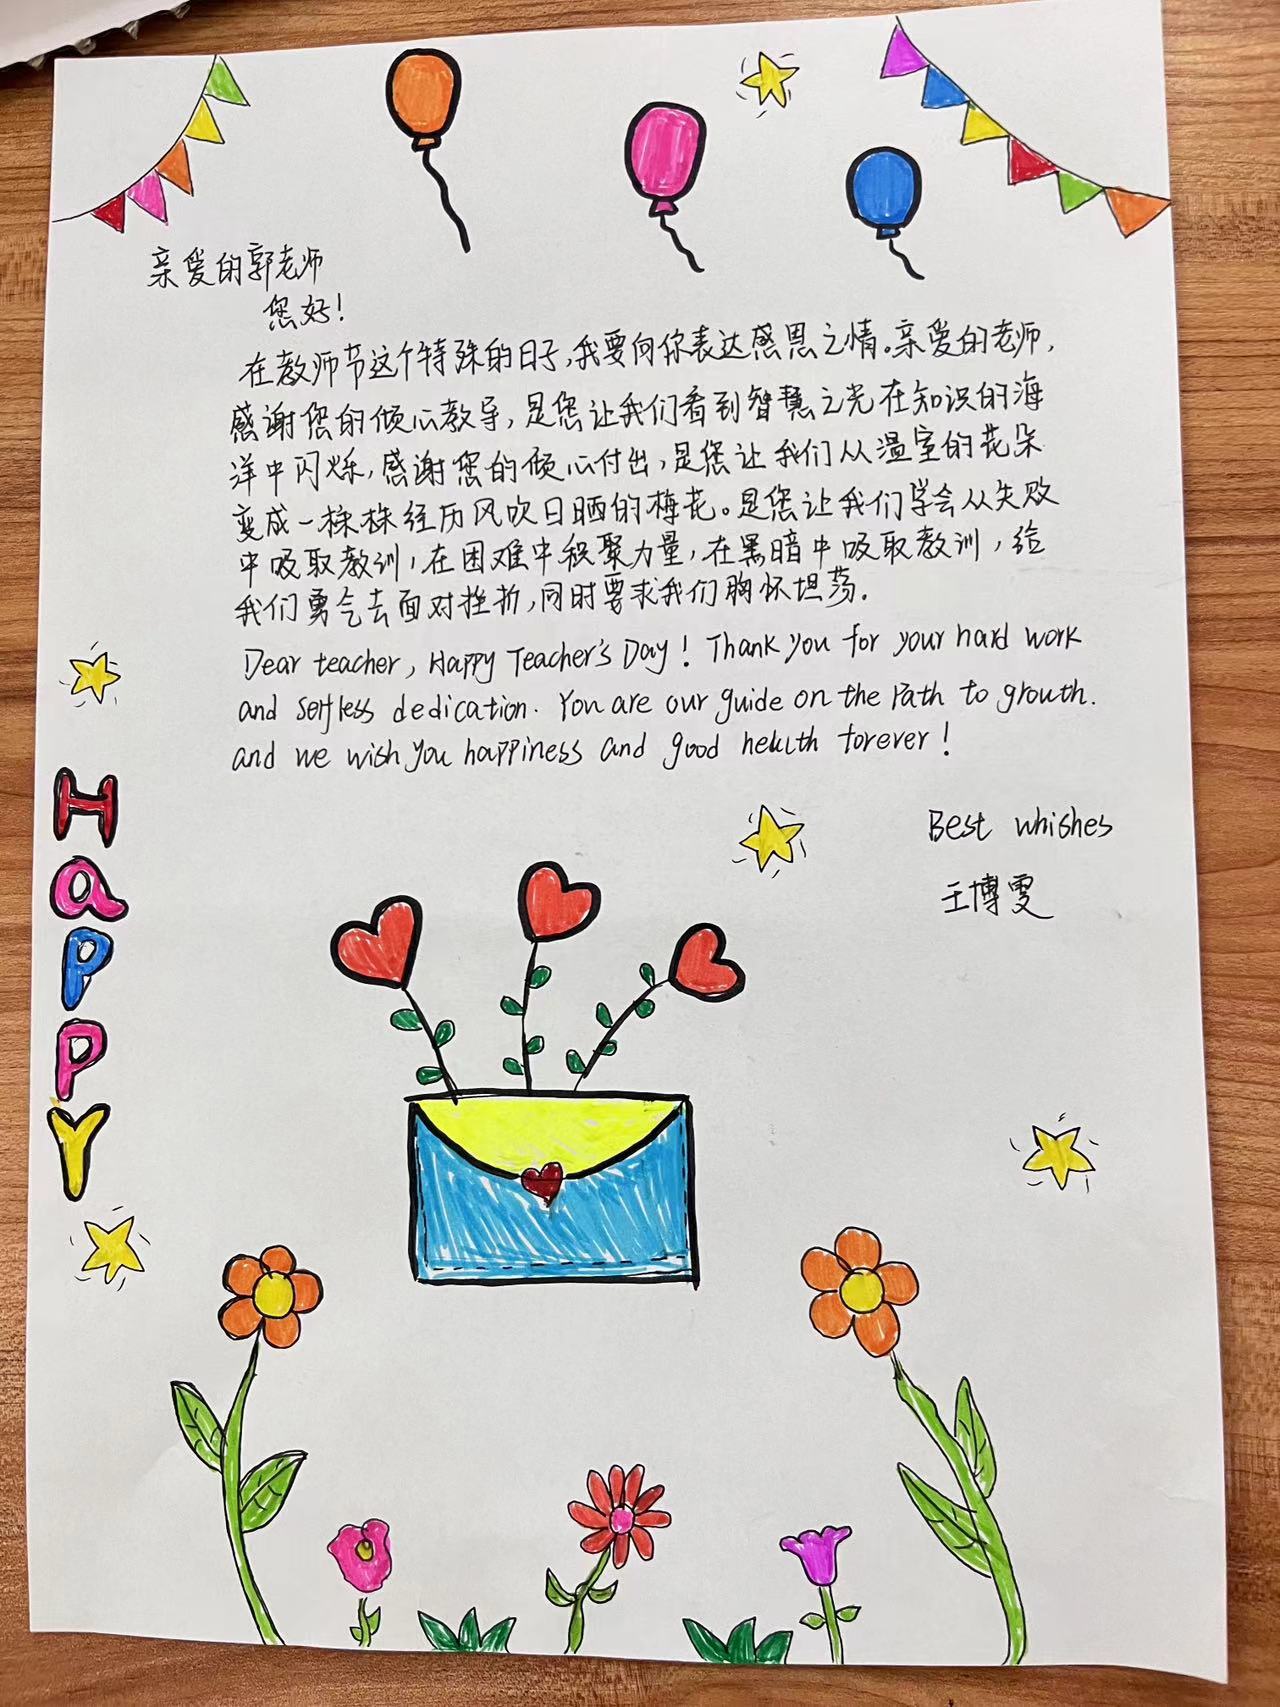 亲爱的郭老师
您好!
在教师节这个特殊的日子,我要向你表达感恩之情。亲爱的老师,
感谢您的倾心教导,是您让我们看到智慧之光在知识的海
洋中闪烁,感谢您的倾心付出,是您让我们从温室的花朵
变成一株株经历风吹日晒的梅花。是您让我们学会从失败
中吸取教训,在困难中积聚力量,在黑暗中吸取教训,给
我们勇气去面对挫折,同时要求我们胸怀坦荡.
Dear teacher, Happy Teacher's Day! Thank you for your hard work
and selfless dedication. You are our guide on the path to growth.
and we wish you happiness and good health forever!
Best whishes
王博雯
HaPPY